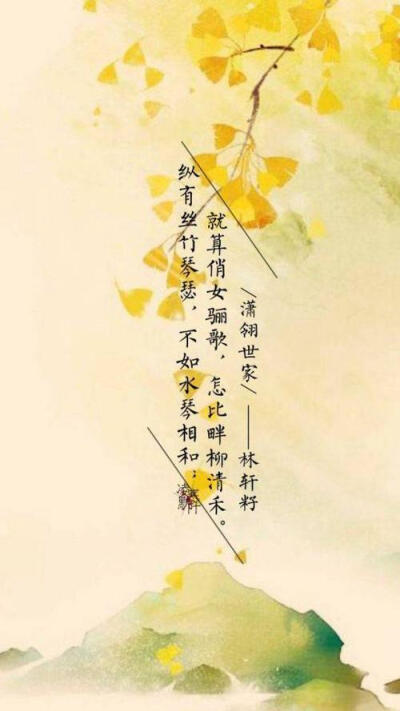 纵有丝竹琴瑟，不如水琴相和；
就算俏女骊歌，怎比畔柳清禾。
/潇翎世家/ ——林轩籽